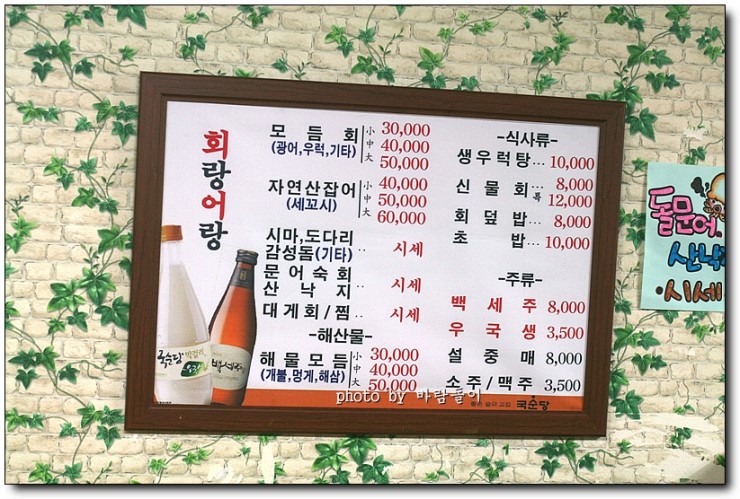 회랑어랑
모듬회 小 30,000
(광어,우럭,기타) 中 40,000
大 50,000
자연산잡어 小 40,000
(세꼬시) 中 50,000
大 60,000
시마,도다리
감성돔(기타)·· 시세
문어숙회
산낙지 ·· 시세
대게회/찜·· 시세
-해산물-
해물모듬 小 30,000
(개불,멍게,해삼) 中 40,000
大 50,000
-식사류-
생우럭탕... 10,000
신물회... 8,000
특 12,000
회덮밥... 8,000
초밥... 10,000
-주류-
백세주 8,000
우국생 3,500
설중매 8,000
소주/맥주 3,500
국순당
국순당
백세주
photo by 바람돌이
돌문어
산낙
·시세